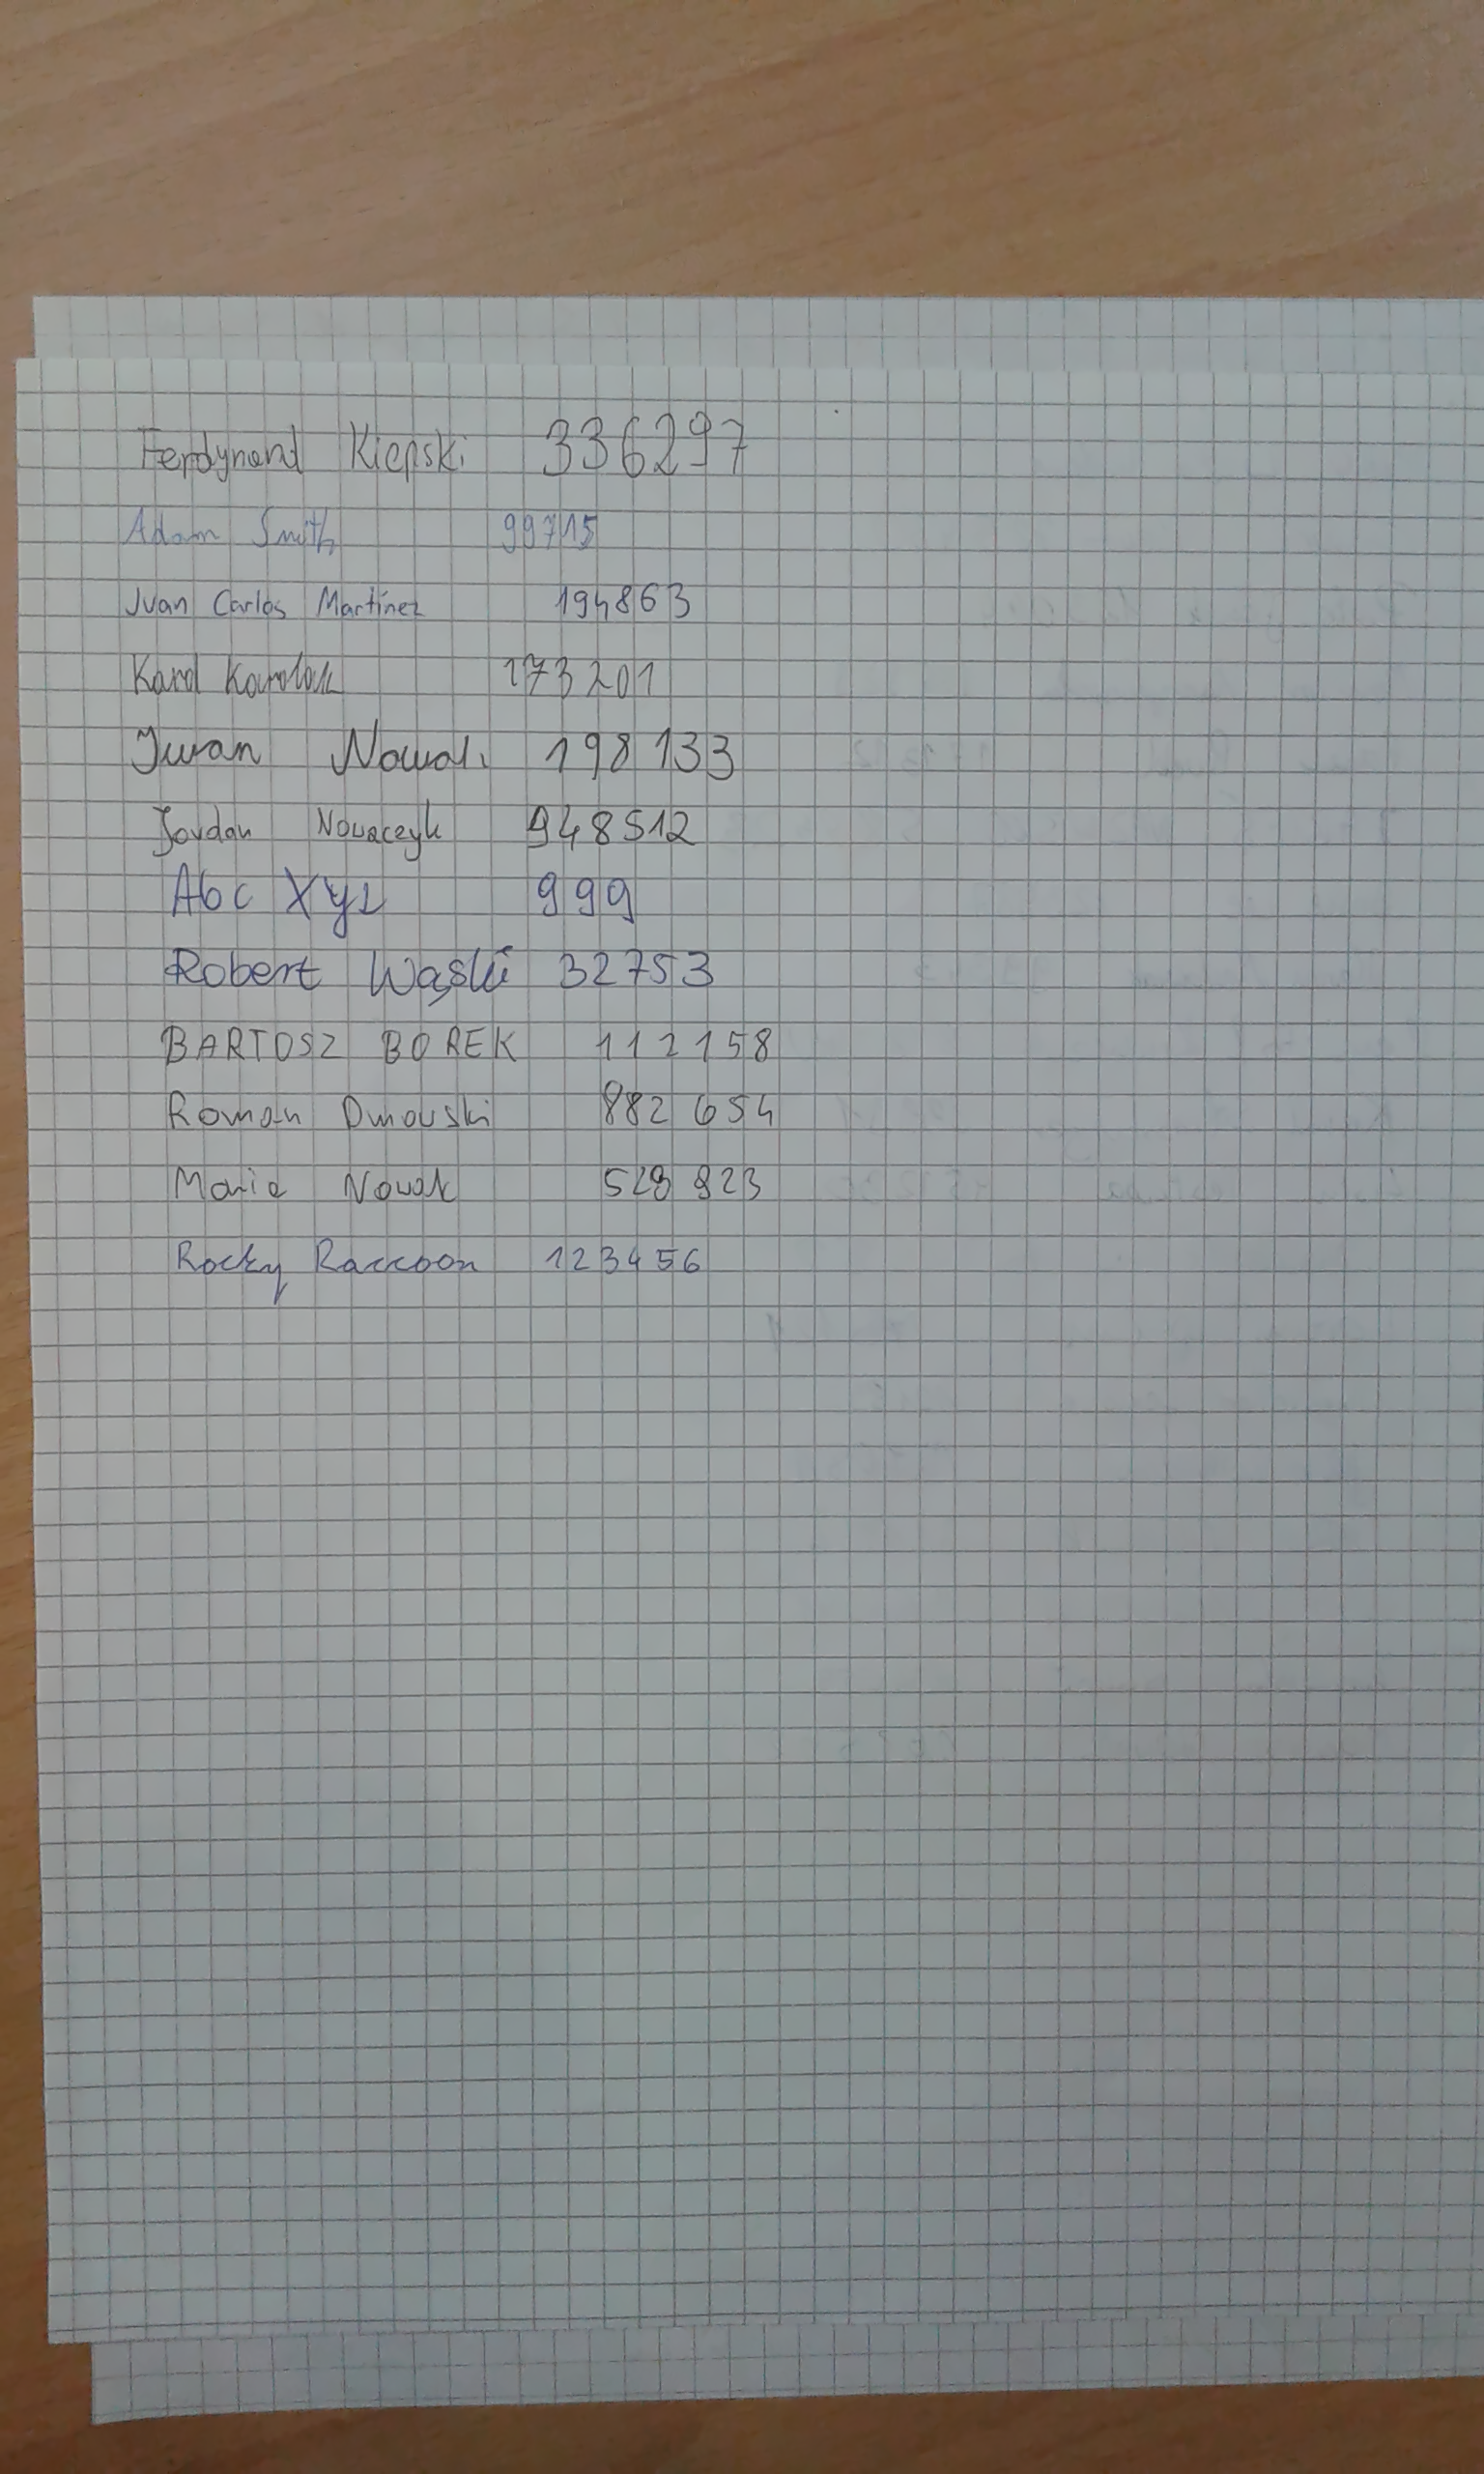 Ferdynand Kiepski 336297
Adam Smith 99715
Juan Carlos Martinez 194863
Karol Karolak 173201
Iwan Nowak 198133
Jordan Nowaczyk 948512
Abc Xyz 999
Robert Wąski 32753
BARTOSZ BOREK 112158
Roman Dmowski 882 654
Maria Nowak 823
Rocky Raccoon 123456